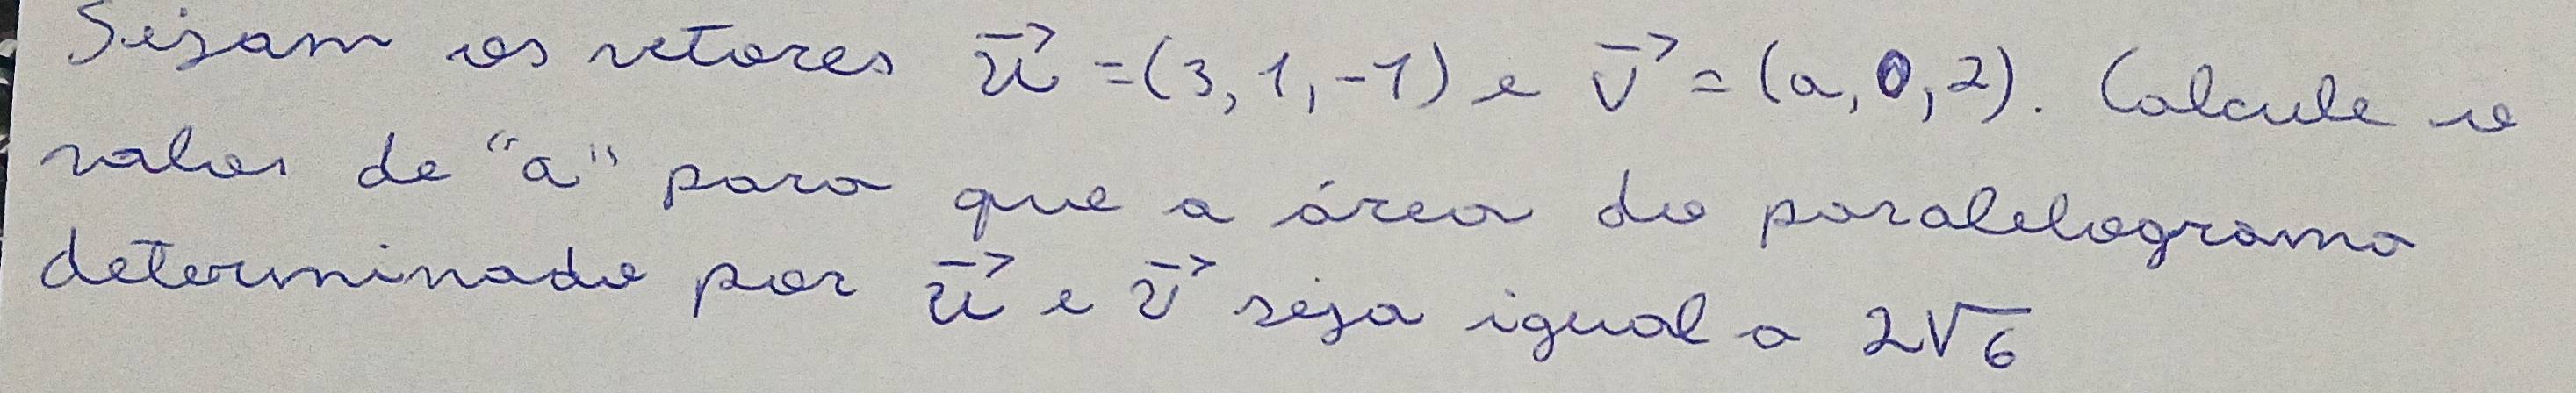 Sejam os vetores u⃗ = (3, 1, -1) e v⃗ = (a, 0, 2). Calcule o
valor de "a" para que a área do paralelogramo
determinado por u⃗ e v⃗ seja igual a 2√6